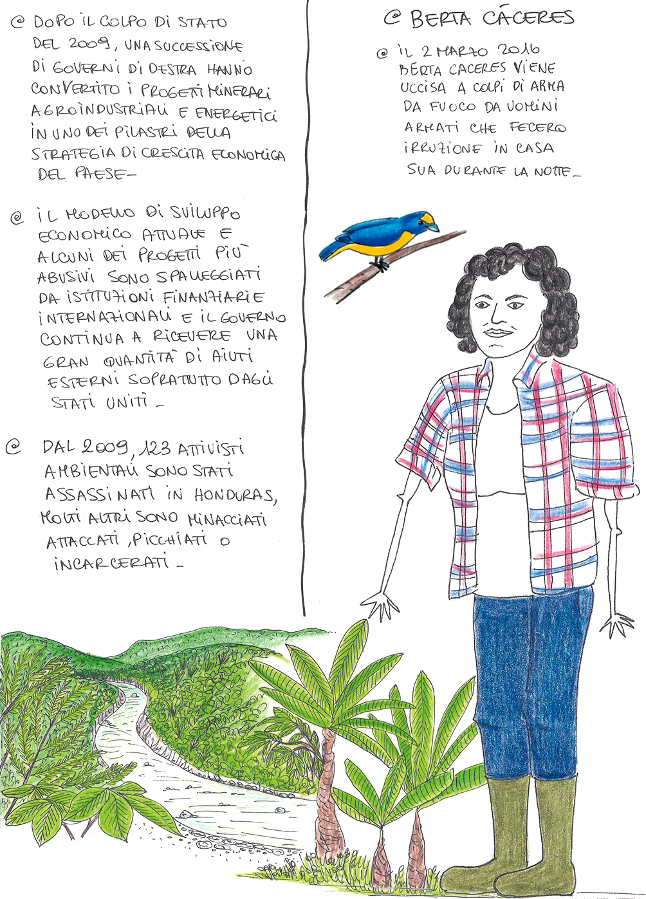 @ DOPO IL COLPO DI STATO
DEL 2009, UNA SUCCESSIONE
DI GOVERNI DI DESTRA HANNO
CONVERTITO I PROGETTI MINERARI
AGROINDUSTRIALI E ENERGETICI
IN UNO DEI PILASTRI DELLA
STRATEGIA DI CRESCITA ECONOMICA
DEL PAESE-
@ IL MODELLO DI SVILUPPO
ECONOMICO ATTUALE E
ALCUNI DEI PROGETTI PIÙ
ABUSIVI SONO SPALLEGGIATI
DA ISTITUZIONI FINANZIARIE
INTERNAZIONALI E IL GOVERNO
CONTINUA A RICEVERE UNA
GRAN QUANTITÀ DI AIUTI
ESTERNI SOPRATUTTO DAGLI
STATI UNITI-
@ DAL 2009, 123 ATTIVISTI
AMBIENTALI SONO STATI
ASSASSINATI IN HONDURAS,
MOLTI ALTRI SONO MINACCIATI
ATTACCATI, PICCHIATI O
INCARCERATI-
@ BERTA CÁCERES
@ IL 2 MARZO 2016
BERTA CACERES VIENE
UCCISA A COLPI DI ARMA
DA FUOCO DA UOMINI
ARMATI CHE FECERO
IRRUZIONE IN CASA
SUA DURANTE LA NOTTE-